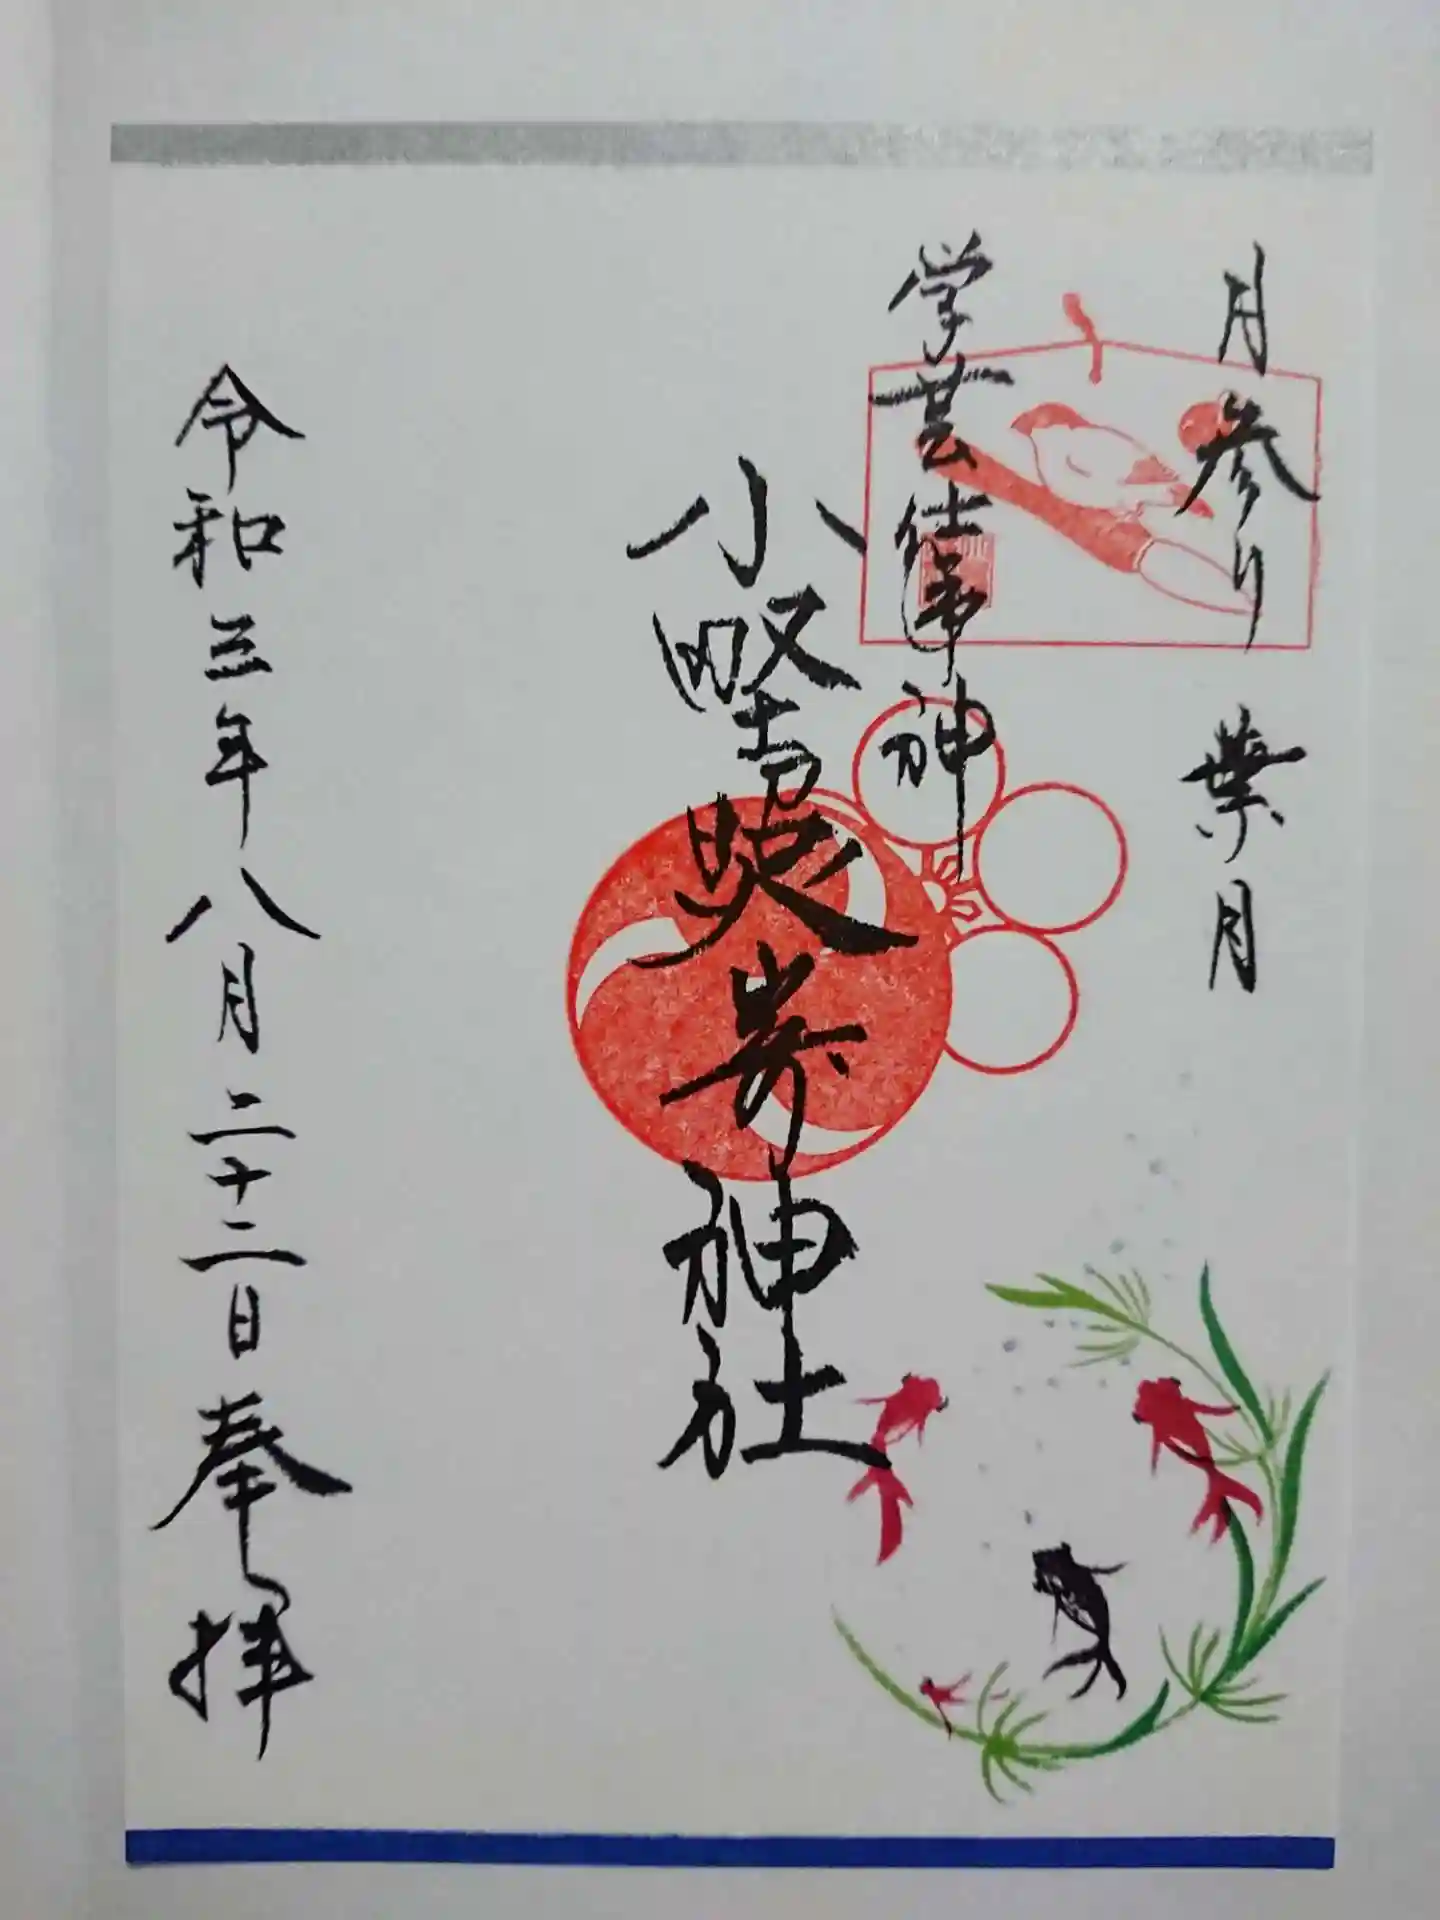 月参り 葉月
学芸仕事神
小野照崎神社
令和三年八月二十二日 奉拝